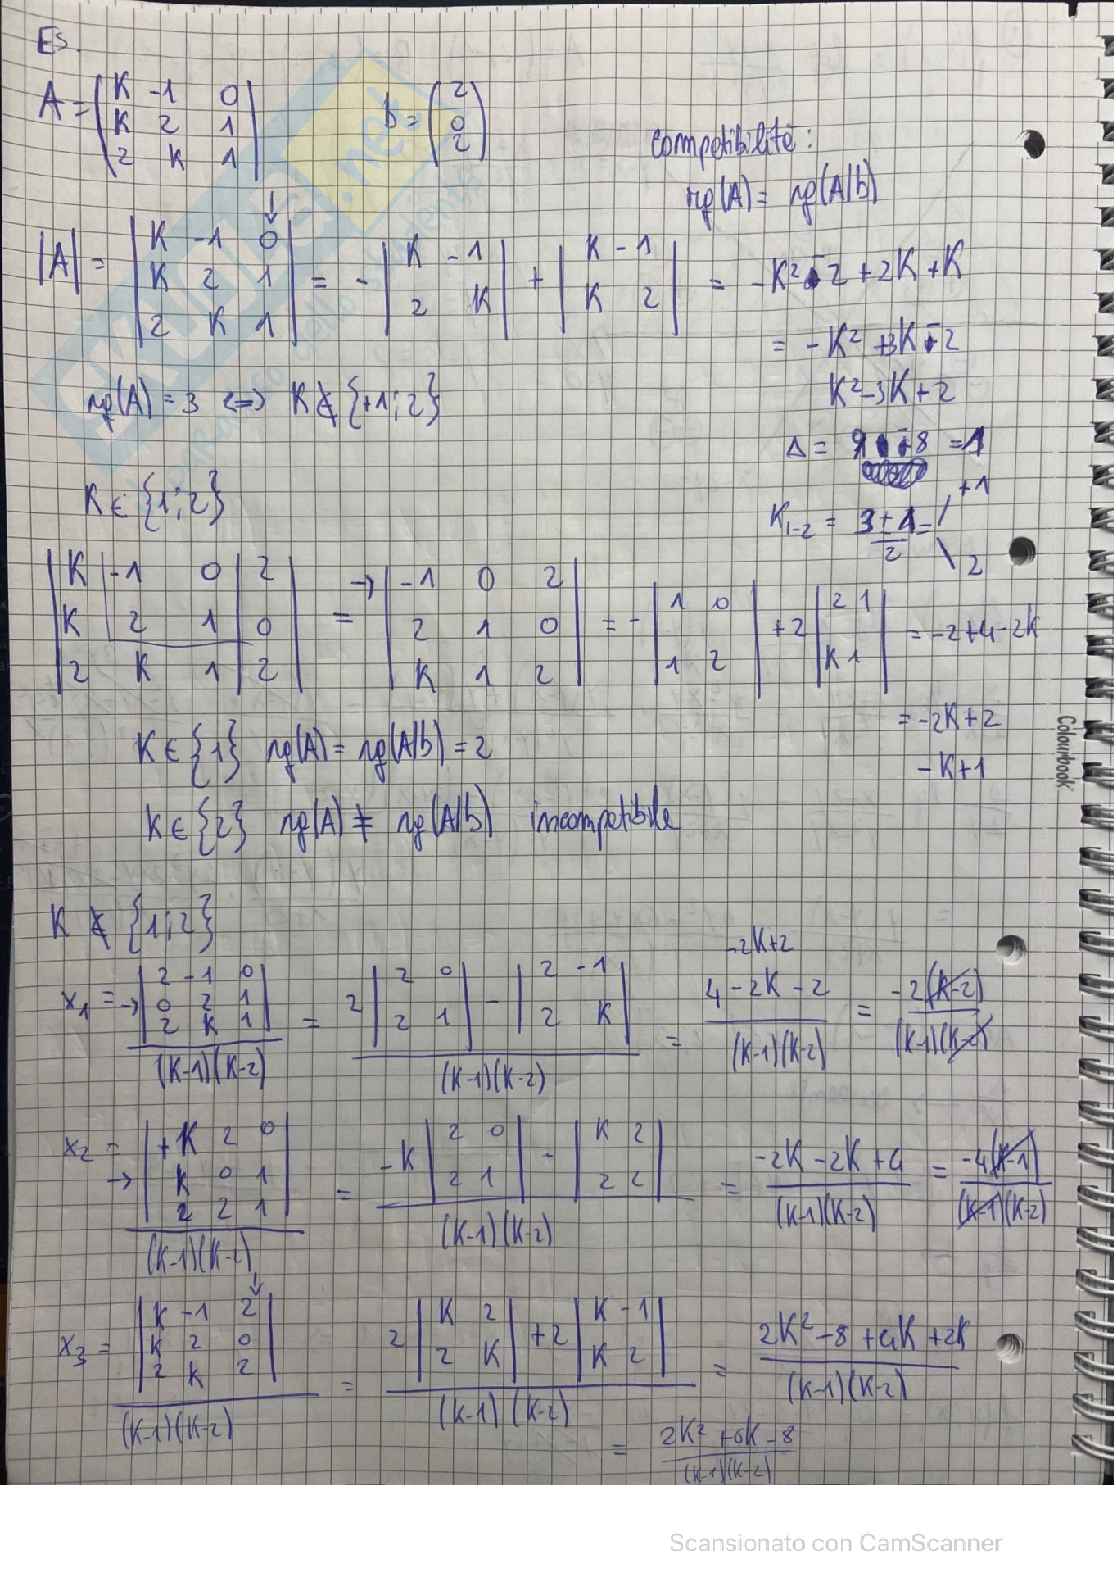 Es.
A = (K -1 0
K 2 1
2 K 1)
b = (2
0
2)
compatibilità:
rg(A) = rg(A|b)
|A| = |K -1 0
K 2 1
2 K 1| = - |K -1
2 K| + |K -1
K 2| = -K² - 2 + 2K + K
= -K² + 3K - 2
K² - 3K + 2
rg(A) = 3 <=> K ∉ {+1; 2}
Δ = 9 - 8 = 1
K1-2 = 3 ± 1 / 2 = +1
2
K ∈ {1; 2}
|K -1 0 2
K 2 1 0
2 K 1 2| = → |-1 0 2
2 1 0
K 1 2| = - |1 0
1 2| + 2 |2 1
K 1| = -2 + 4 - 2K
= -2K + 2
-K + 1
K ∈ {1} rg(A) = rg(A|b) = 2
K ∈ {2} rg(A) ≠ rg(A|b) incompatibile
K ∉ {1; 2}
x1 = → |2 -1 0
0 2 1
2 K 1| / (K-1)(K-2) = 2 |2 0
2 1| - |2 -1
2 K| / (K-1)(K-2) = -2K+2
4 - 2K - 2 / (K-1)(K-2) = -2(K-2) / (K-1)(K-2)
x2 = → |+K 2 0
K 0 1
2 2 1| / (K-1)(K-2) = -K |2 0
2 1| - |K 2
2 2| / (K-1)(K-2) = -2K - 2K + 4 / (K-1)(K-2) = -4(K-1) / (K-1)(K-2)
x3 = |K -1 2
K 2 0
2 K 2| / (K-1)(K-2) = 2 |K 2
2 K| + 2 |K -1
K 2| / (K-1)(K-2) = 2K² - 8 + 4K + 2K / (K-1)(K-2)
= 2K² + 6K - 8 / (K-1)(K-2)
Colourbook
Scansionato con CamScanner